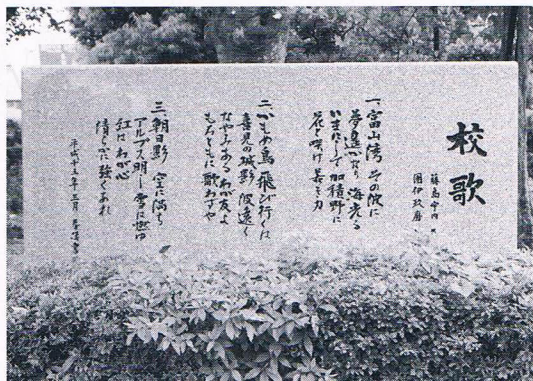 校歌
藤島宇内 詞
團伊玖磨
一、富山湾 その波に
夢遥かなり 海光る
いまにして 加積野に
花と咲け 若き力
二、かもめ鳥 飛び行くは
喜見の城影 波遠く
なやみある わが友よ
もろともに 歌わざや
三、朝日影 空に満ち
アルプス明し 雪は燃ゆ
紅は わが心
清らかに 強くあれ
平成十五年三月